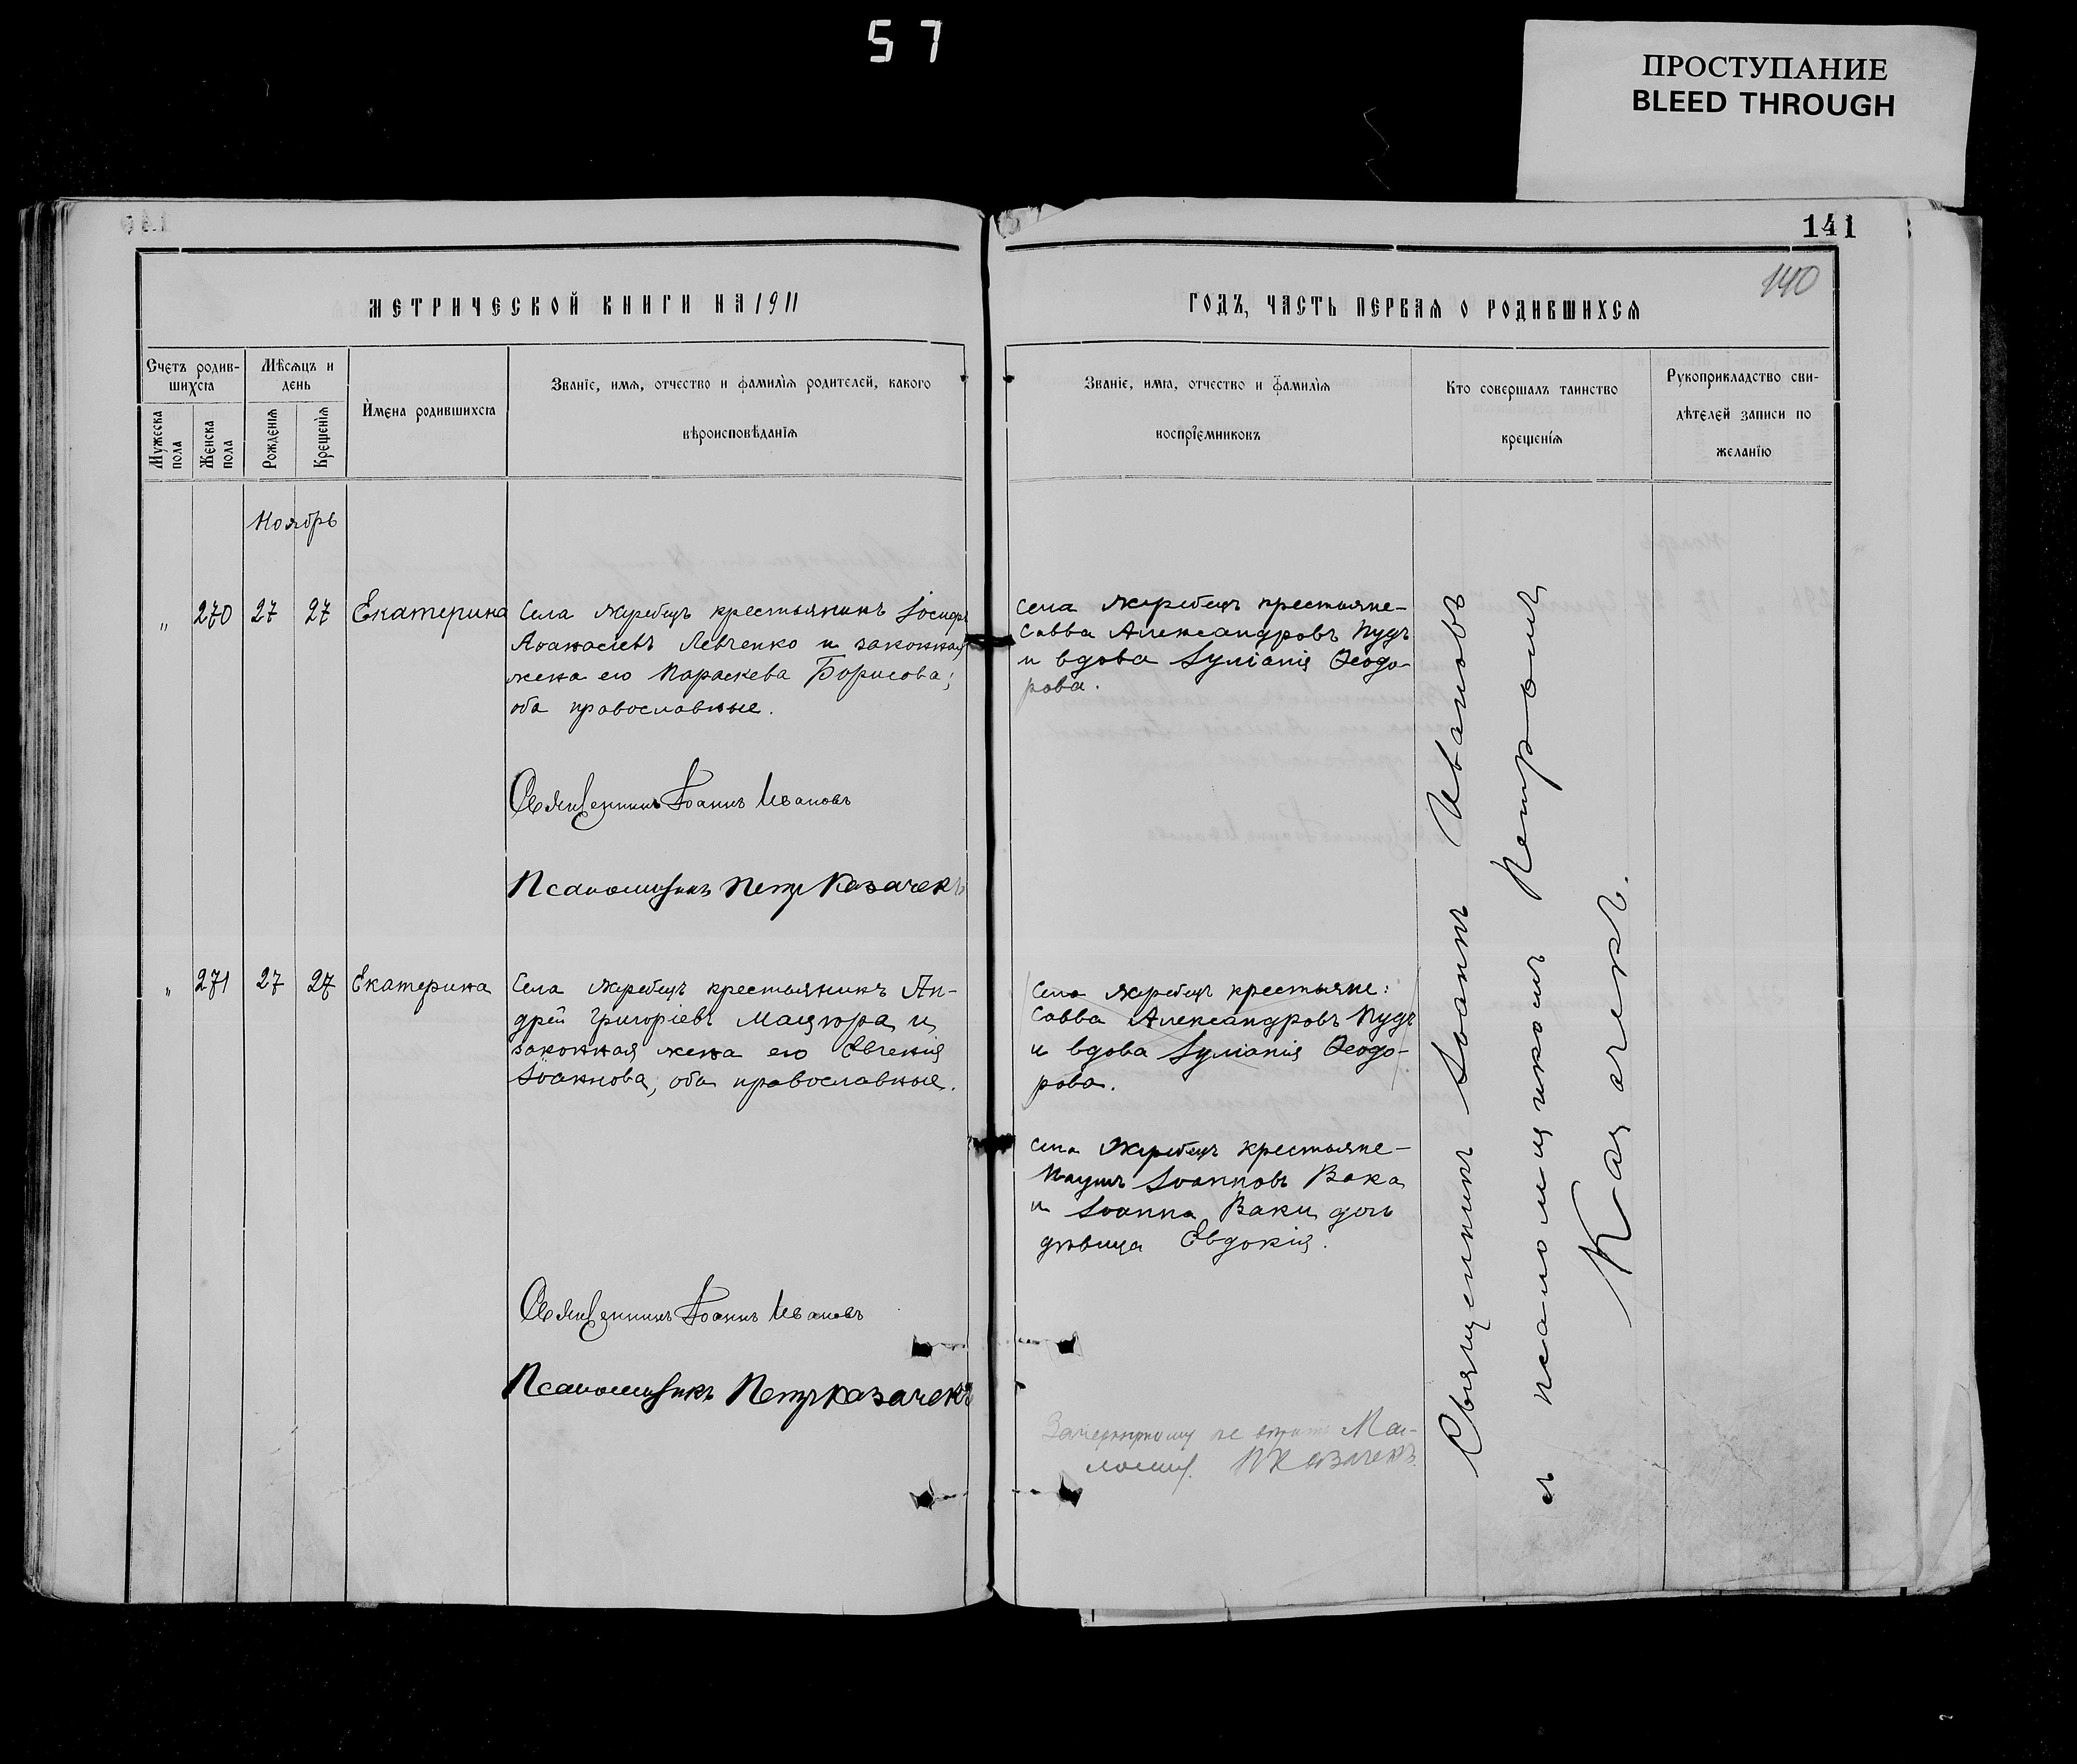 57
ПРОСТУПАНИЕ
BLEED THROUGH
141
140
МЕТРИЧЕСКОЙ КНИГИ НА 1911
ГОДЪ, ЧАСТЬ ПЕРВАЯ О РОДИВШИХСЯ
Счетъ родив-
шихся
Мужеска пола
Женска пола
Мѣсяцъ и
день
Рожденія
Крещенія
Имена родившихся
Званіе, имя, отчество и фамилія родителей, какого
вѣроисповѣданія
Званіе, имя, отчество и фамилія
воспріемниковъ
Кто совершалъ таинство
крещенія
Рукоприкладство сви-
дѣтелей записи по
желанію
Ноябрь
„ 270 27 27 Екатерина
Села Жеребецъ крестьянинъ Іосифъ
Аѳанасіевъ Левченко и законная
жена его Параскева Борисова;
оба православные.
Села Жеребецъ крестьяне-
Савва Александровъ Пудъ
и вдова Іуліанія Ѳеодо-
рова.
Священникъ Іоаннъ Ивановъ
Псаломщикъ Петръ Казачекъ
„ 271 27 27 Екатерина
Села Жеребецъ крестьянинъ Ан-
дрей Григоріевъ Мацюра и
законная жена его Евгенія
Іоаннова, оба православные.
Села Жеребецъ крестьяне:
Савва Александровъ Пудъ
и вдова Іуліанія Ѳеодо-
рова.
Села Жеребецъ крестьяне-
Наумъ Іоанновъ Вака
и Іоанна Ваки дочь
дѣвица Евдокія.
Священникъ Іоаннъ Ивановъ
Псаломщикъ Петръ Казачекъ
Зачеркнутому не
П Казачекъ
Священникъ Іоаннъ Ивановъ
съ псаломщикомъ Петромъ
Казачекъ.